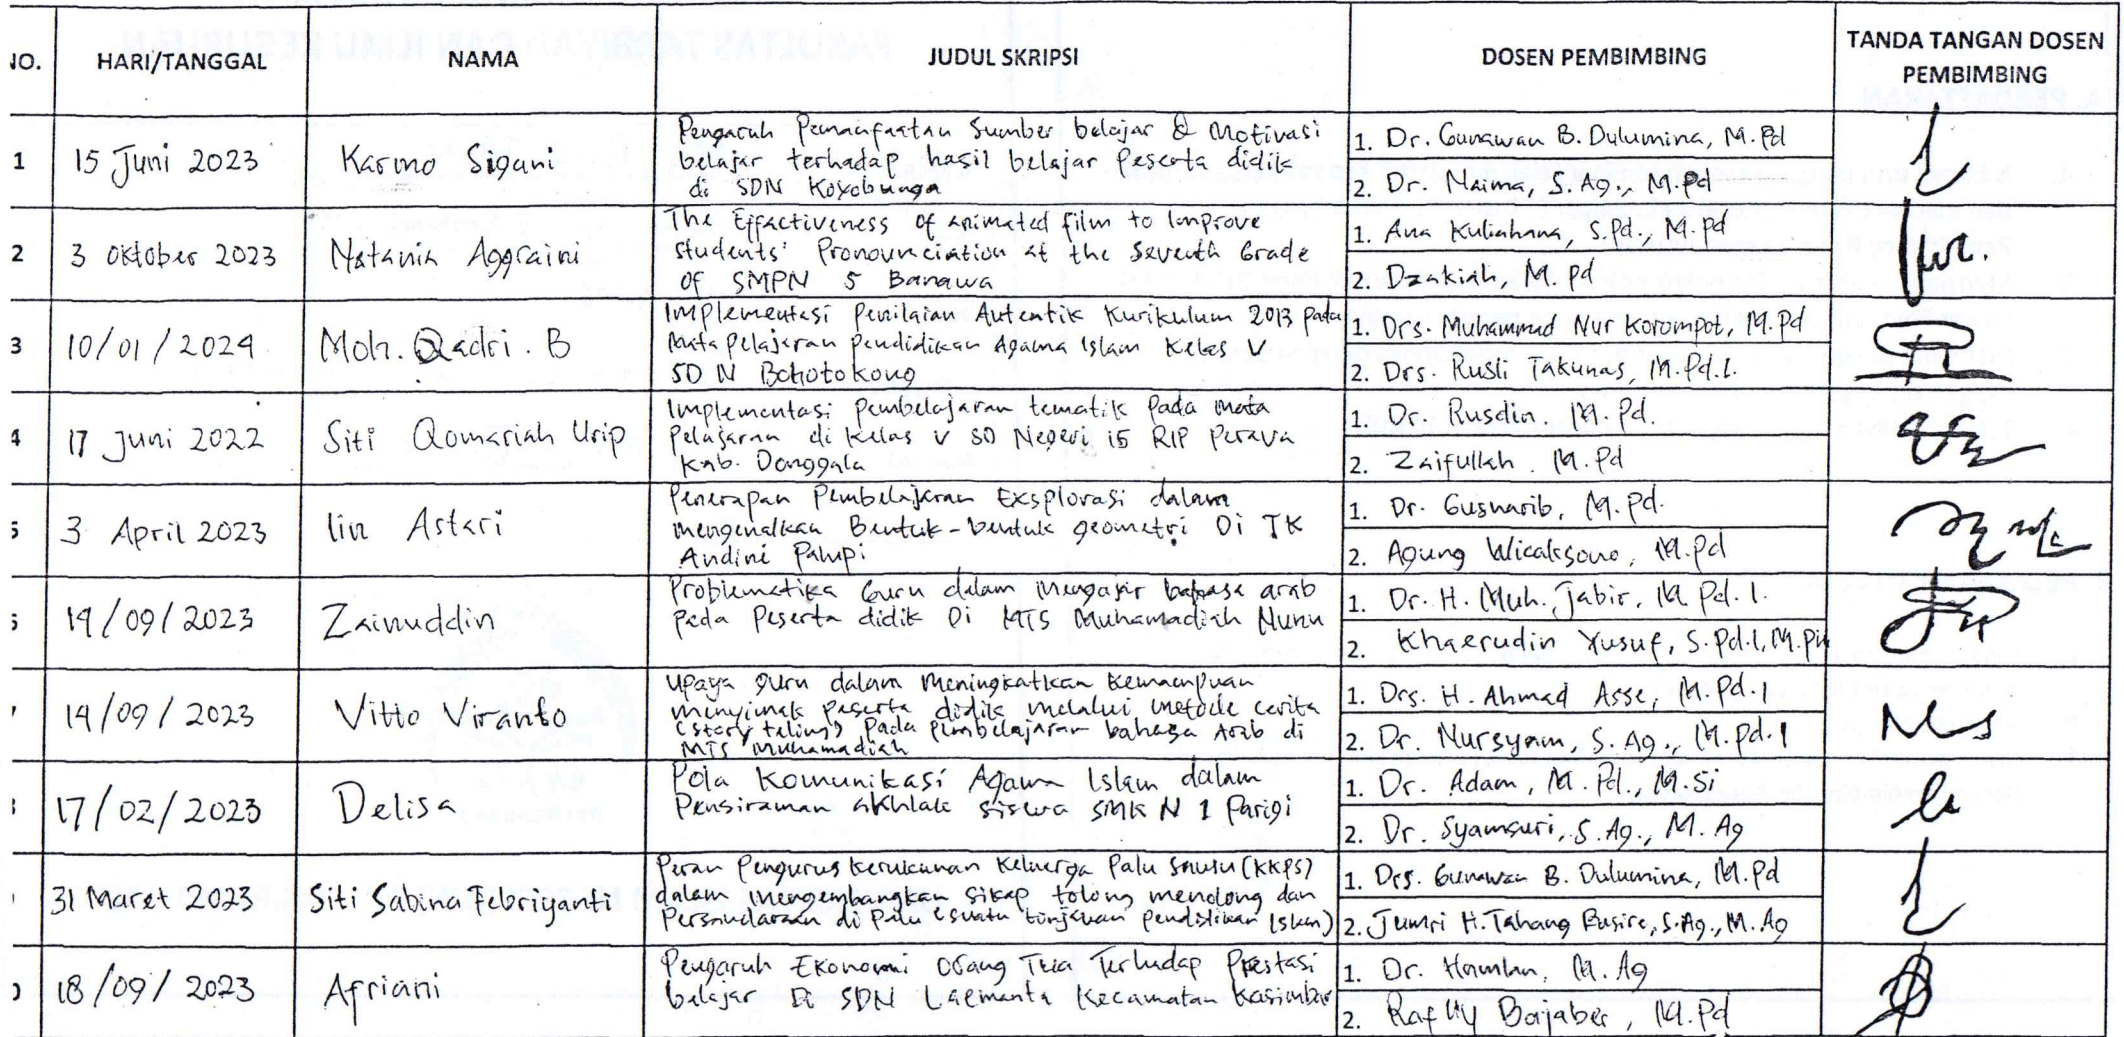 NO. HARI/TANGGAL NAMA JUDUL SKRIPSI DOSEN PEMBIMBING TANDA TANGAN DOSEN
PEMBIMBING
1 15 Juni 2023 Karmo Sigani
Pengaruh Pemanfaatan Sumber belajar & Motivasi
belajar terhadap hasil belajar Peserta didik
di SDN Koxobunga
1. Dr. Gunawan B. Dulumina, M.Pd
2. Dr. Naima, S.Ag., M.Pd
2 3 Oktober 2023 Natania Aggraini
The Effectiveness of animated film to Improve
Students' Pronounciation at the Seventh Grade
Of SMPN 5 Banawa
1. Ana Kuliahana, S.Pd., M.Pd
2. Dzakiah, M.pd
3 10/01/2024 Moh. Qadri. B
Implementasi Penilaian Autentik Kurikulum 2013 pada
Mata Pelajaran Pendidikan Agama Islam Kelas V
SDN Bohotokong
1. Drs. Muhammad Nur Korompot, M.Pd
2. Drs. Rusli Takunas, M.Pd.I.
4 17 Juni 2022 Siti Qomariah Urip
Implementasi Pembelajaran tematik Pada Mata
Pelajaran di Kelas V SD Negeri 15 RIP Perava
Kab. Donggala
1. Dr. Rusdin, M.Pd
2. Zaifullah. M.Pd
5 3 April 2023 Iin Astari
Penerapan Pembelajaran Eksplorasi dalam
mengenalkan Bentuk-bentuk geometri Di TK
Andini Palupi
1. Dr. Gusnarib, M.Pd.
2. Agung Wicaksono, M.Pd
19/09/2023 Zainuddin
Problematika Guru dalam Mengajar bahasa arab
Pada Peserta didik Di MTS Muhamadiah Nunu
1. Dr. H. Muh. Jabir, M.Pd.I.
2. Khaerudin Yusuf, S.Pd.I, M.Ph
14/09/2023 Vitto Viranto
Upaya guru dalam Meningkatkan Kemampuan
menyimak Peserta didik melalui metode cerita
(story teling) Pada Pembelajaran bahasa Arab di
MTS Muhamadiah
1. Drs. H. Ahmad Asse, M.Pd.I
2. Dr. Nursyam, S.Ag., M.Pd.I
17/02/2023 Delisa
Pola Komunikasi Agama Islam dalam
Pensiraman akhlak siswa SMK N 1 Parigi
1. Dr. Adam, M.Pd., M.Si
2. Dr. Syamsuri, S.Ag., M.Ag
31 Maret 2023 Siti Sabina Febriyanti
Peran Pengurus Kerukunan Keluarga Palu (KKPS)
dalam mengembangkan sikap tolong menolong dan
Persaudaraan di Palu (suatu tinjauan pendidikan Islam)
1. Drs. Gunawan B. Dulumina, M.Pd
2. Jumri H. Tahang Basire, S.Ag., M.Ag
18/09/2023 Afriani
Pengaruh Ekonomi Orang Tua Terhadap Prestasi
belajar Di SDN Laemanta Kecamatan Kasimbar
1. Dr. Hamlan, M.Ag
2. Rafiiy Bajaber, M.Pd